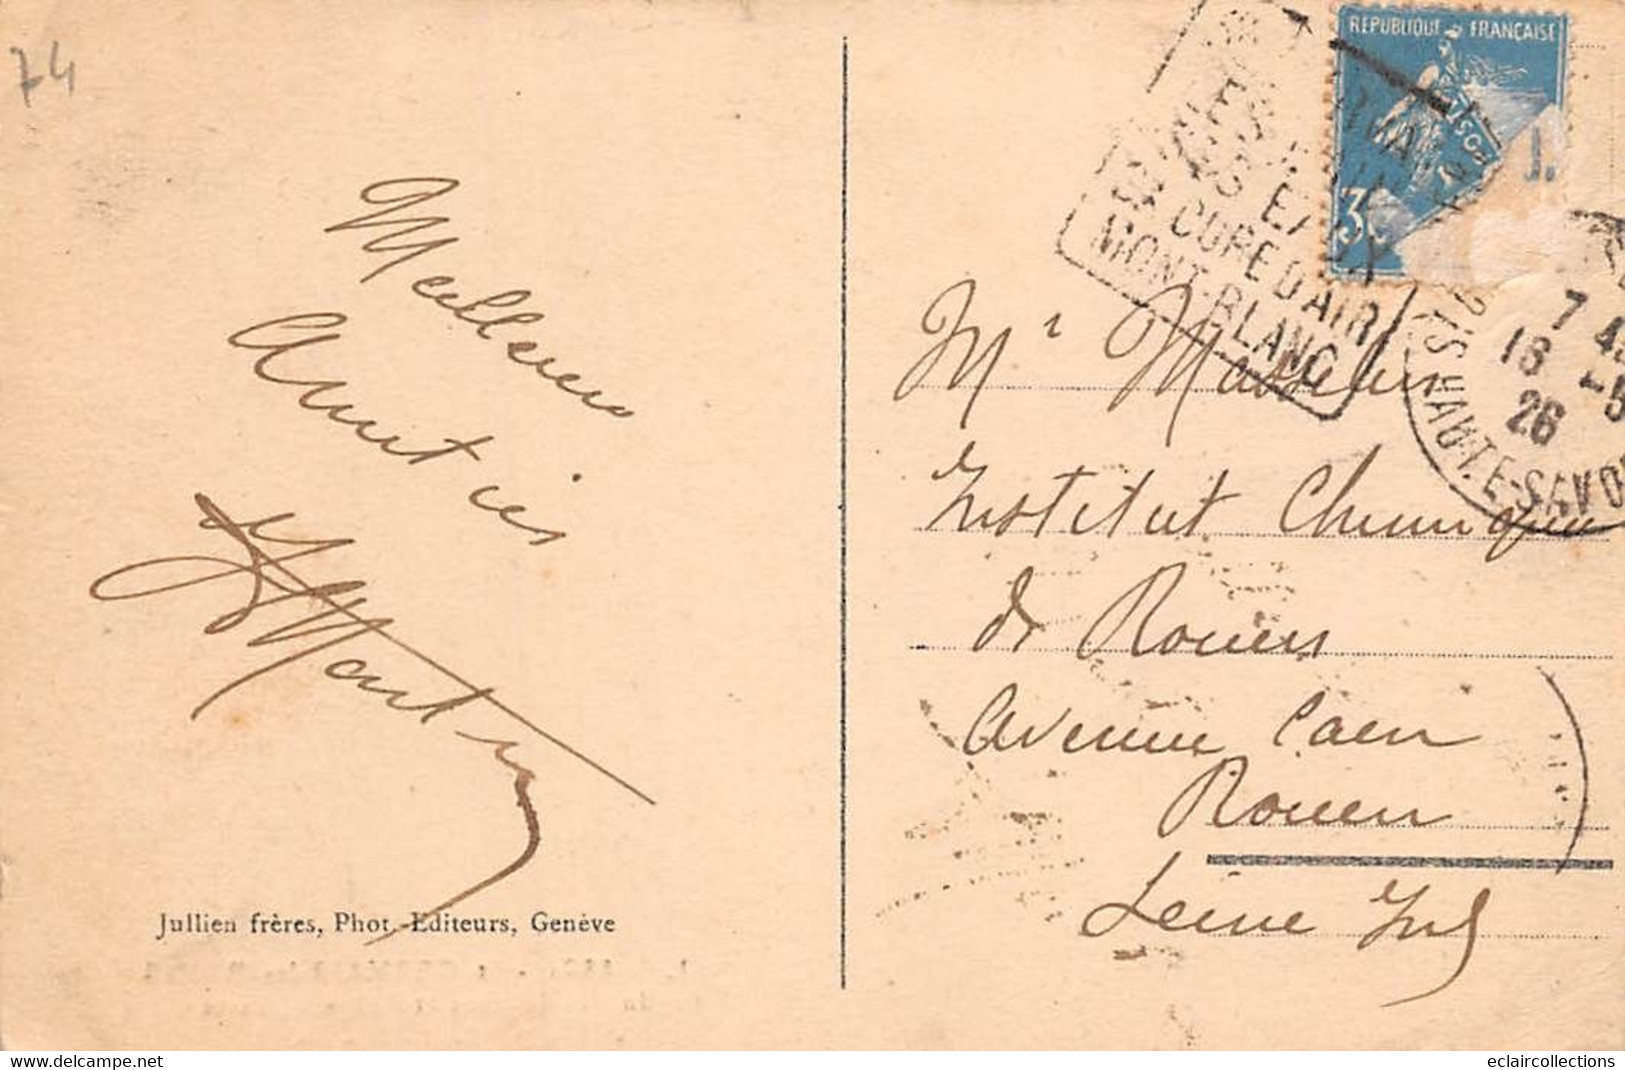 74
Meilleures
Amitiés
HMartin
Jullien frères, Phot.-Editeurs, Genève
REPUBLIQUE FRANÇAISE
EAUX
CURE D'AIR
MONT-BLANC
7 45
18 -5
26
HAUTE-SAVOIE
Mr
Institut Chimique
de Rouen
Avenue Caen
Rouen
Seine Inf
eclaircollections